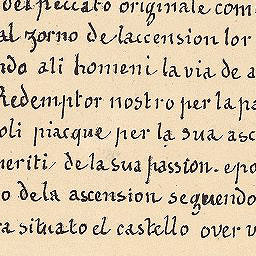 del peccato originale com
al zorno de laccension lor
ndo ali homeni la via de a
Redemptor nostro per la pa
oli piacque per la sua asc
meriti de la sua passion. epo
o de la ascension seguendo
ra situato el castello over v